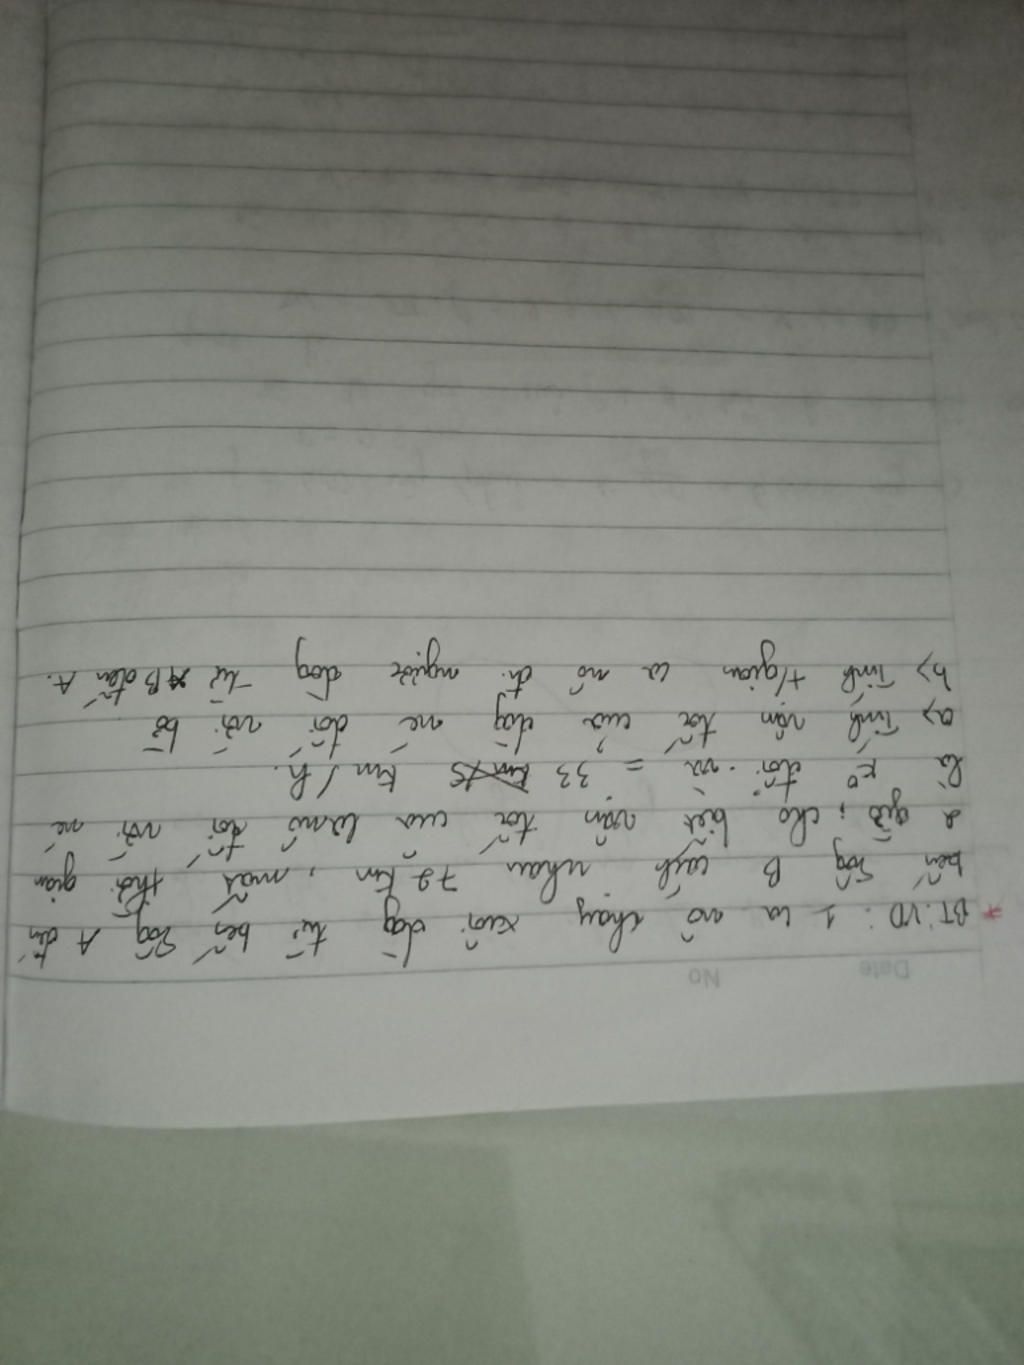 Date No
* BT: VD: 1 ca nô chạy xuôi dòg từ bến sôg A đến
bến sôg B cách nhau 72 km, mất thời gian
2 giờ, cho biết vận tốc của ca nô đối với nc
là kº đổi và = 33 km/h.
a> Tính vận tốc của dòg nc đối với bờ
b> Tính t/gian ca nô đi ngược dòg từ B đến A.